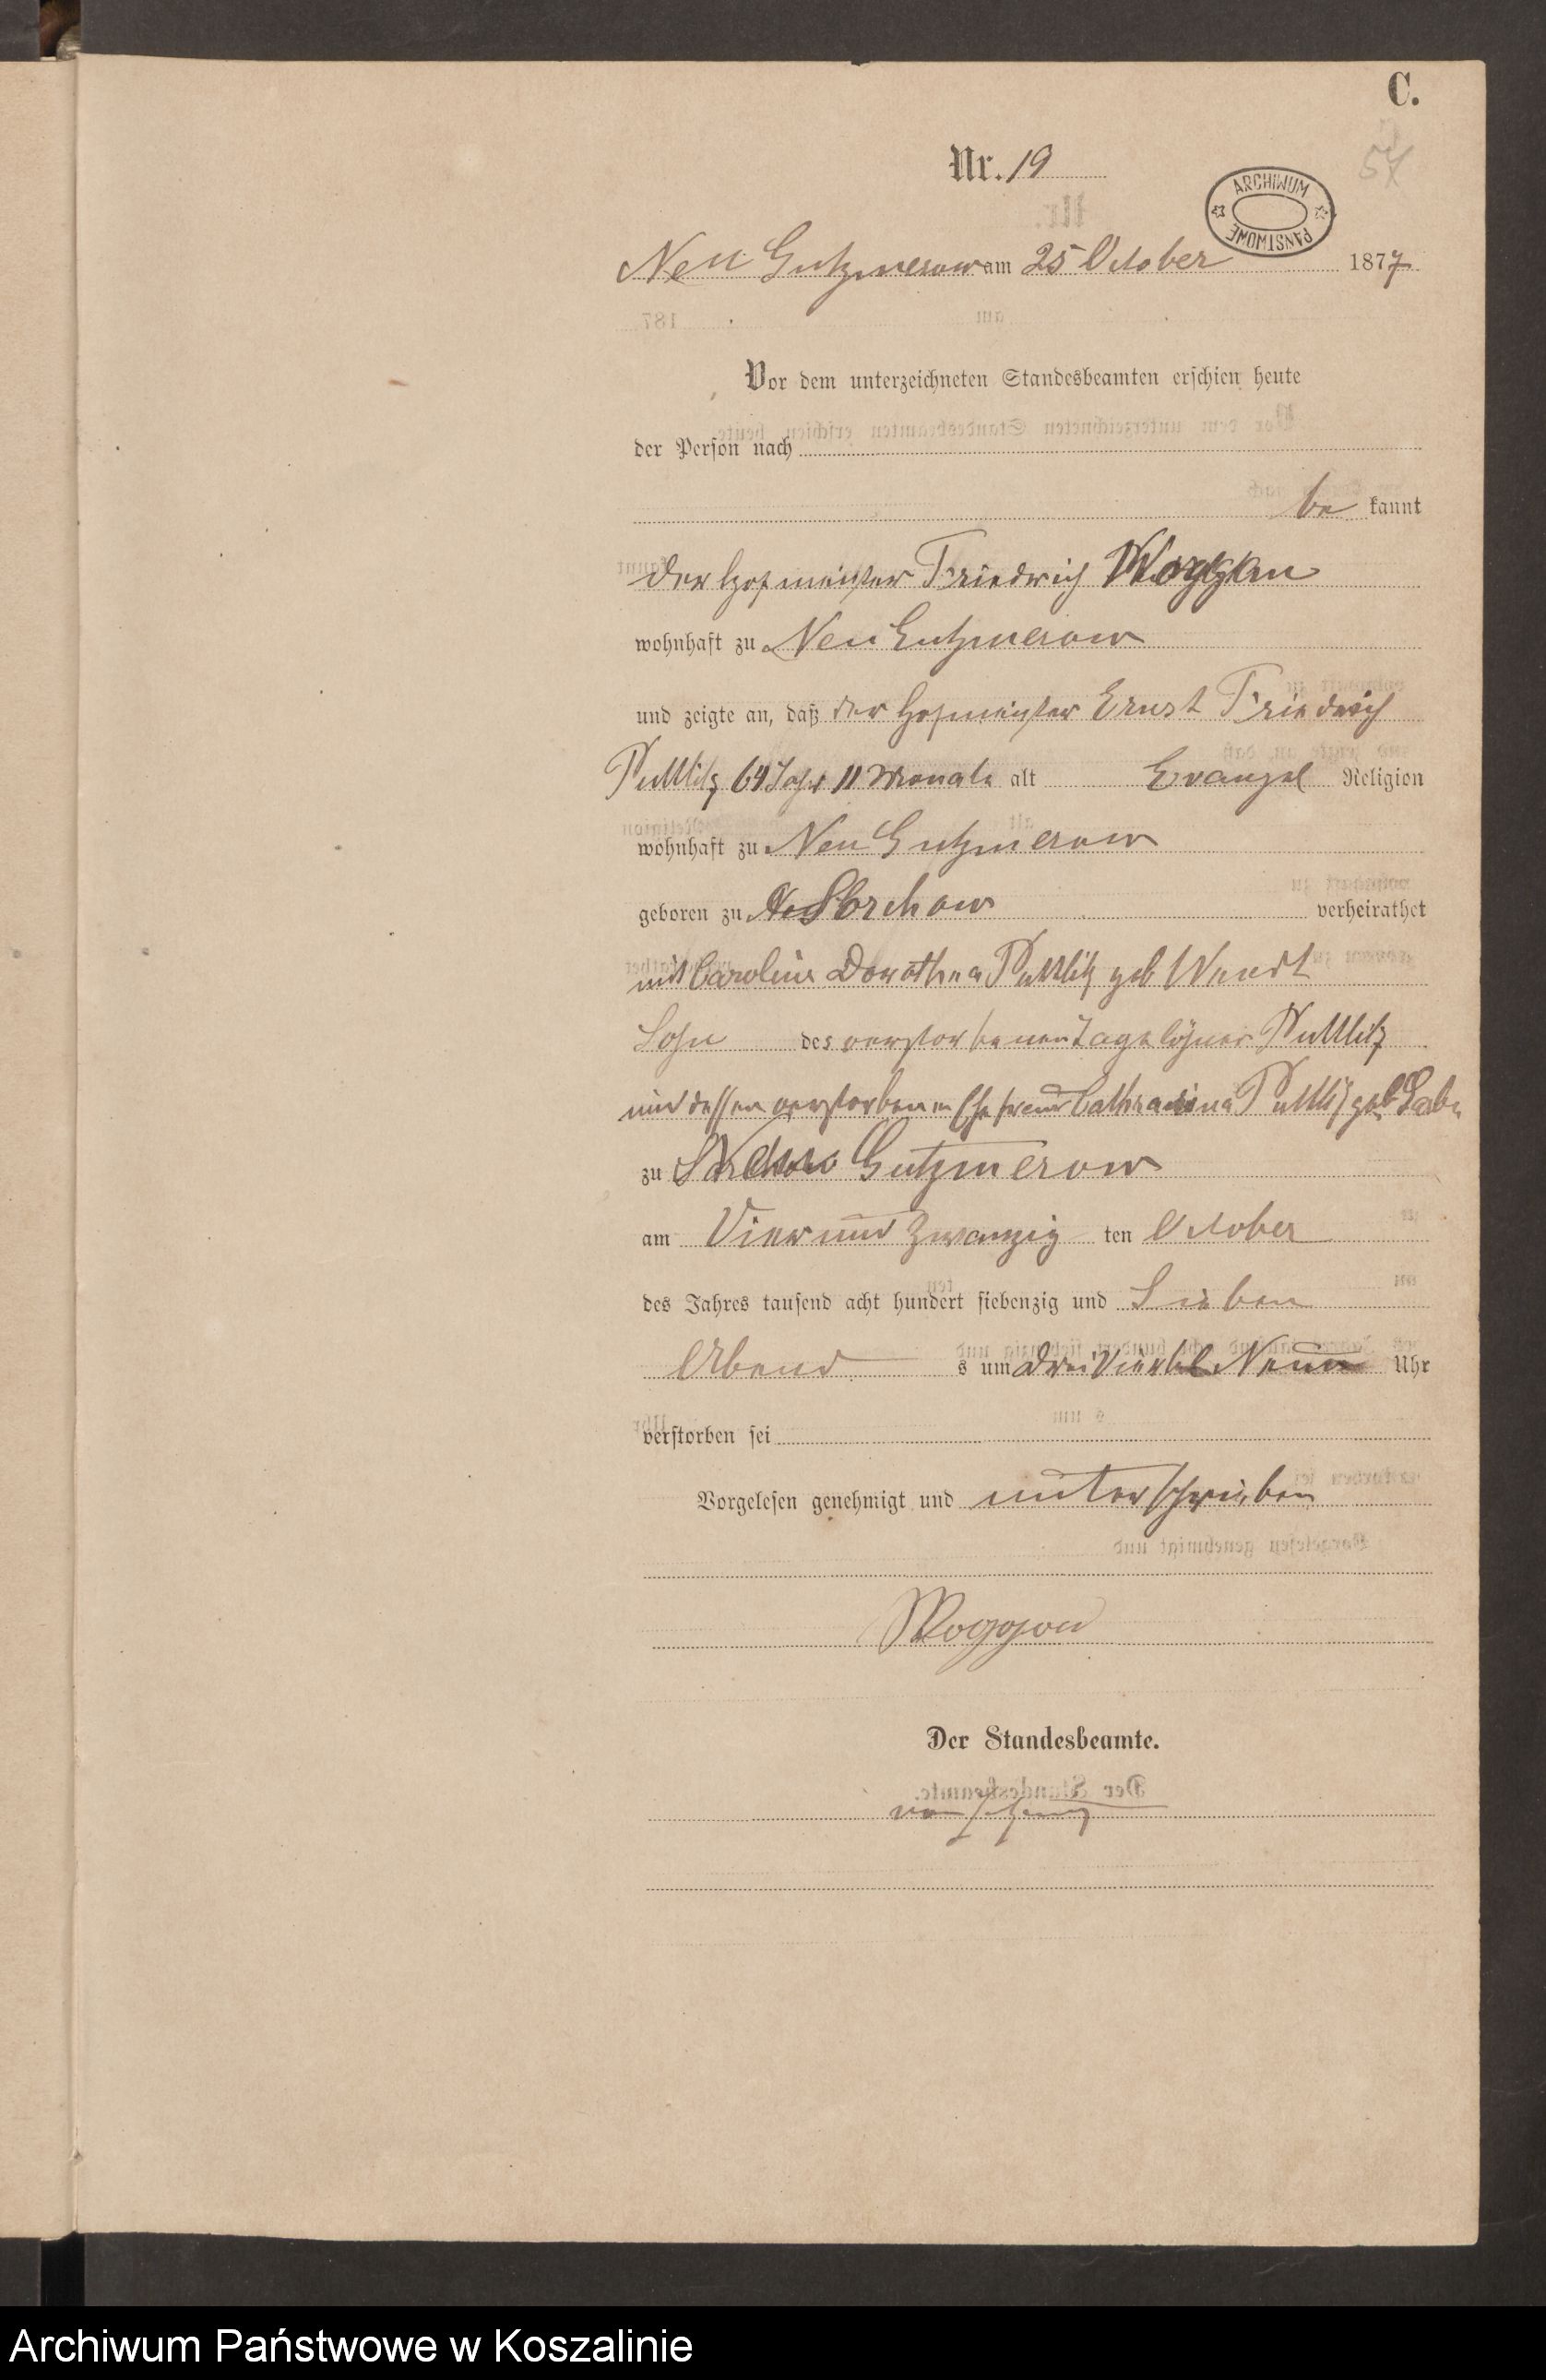 C.
Nr. 19
57
ARCHIWUM PAŃSTWOWE
Neu Gutzmerow am 25 October 1877
Vor dem unterzeichneten Standesbeamten erschien heute
der Person nach
be kannt
der Hofmeister Friedrich Woggon
wohnhaft zu Neu Gutzmerow
und zeigte an, daß der Hofmeister Ernst Friedrich
Puttlitz 64 Jahr 11 Monate alt Evangel Religion
wohnhaft zu Neu Gutzmerow
geboren zu Sorchow verheirathet
mit Caroline Dorothea Puttlitz geb Wendt
Sohn des verstorbenen Tagelöhner Puttlitz
und dessen verstorbenen Ehefrau Catharina Puttlitz geb
zu Neu Gutzmerow
am Vier und zwanzig ten October
des Jahres tausend acht hundert siebenzig und Sieben
Abend s um drei Viertel Neun Uhr
verstorben sei
Vorgelesen genehmigt und unterschrieben
Woggon
Der Standesbeamte.
von
Archiwum Państwowe w Koszalinie